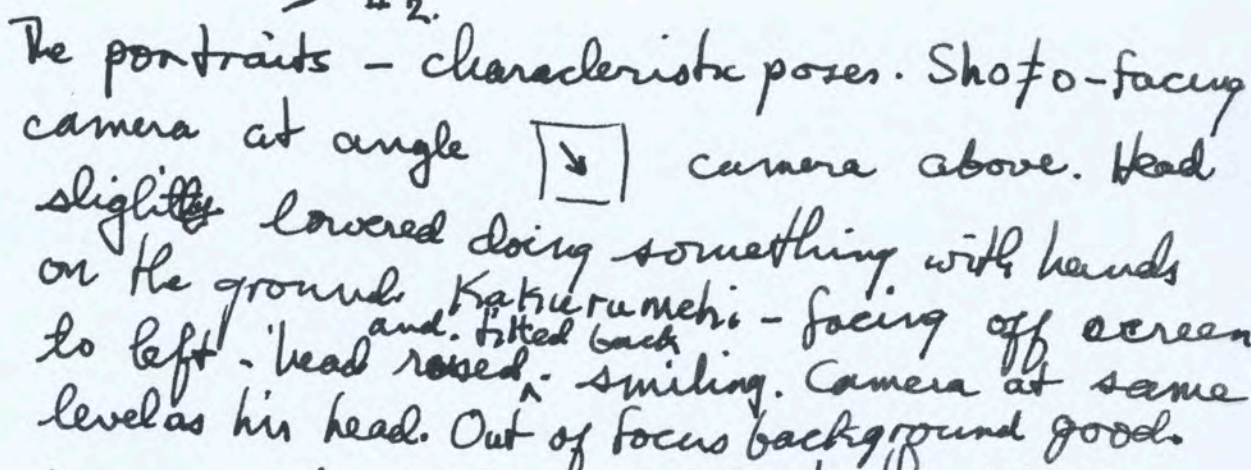 #2.
The portraits – characteristic poses. Shoto – facing
camera at angle ↘ camera above. Head
slightly lowered doing something with hands
on the ground. Kakurumehi – facing off screen
to left – head raised, and tilted back smiling. Camera at same
level as his head. Out of focus background good.